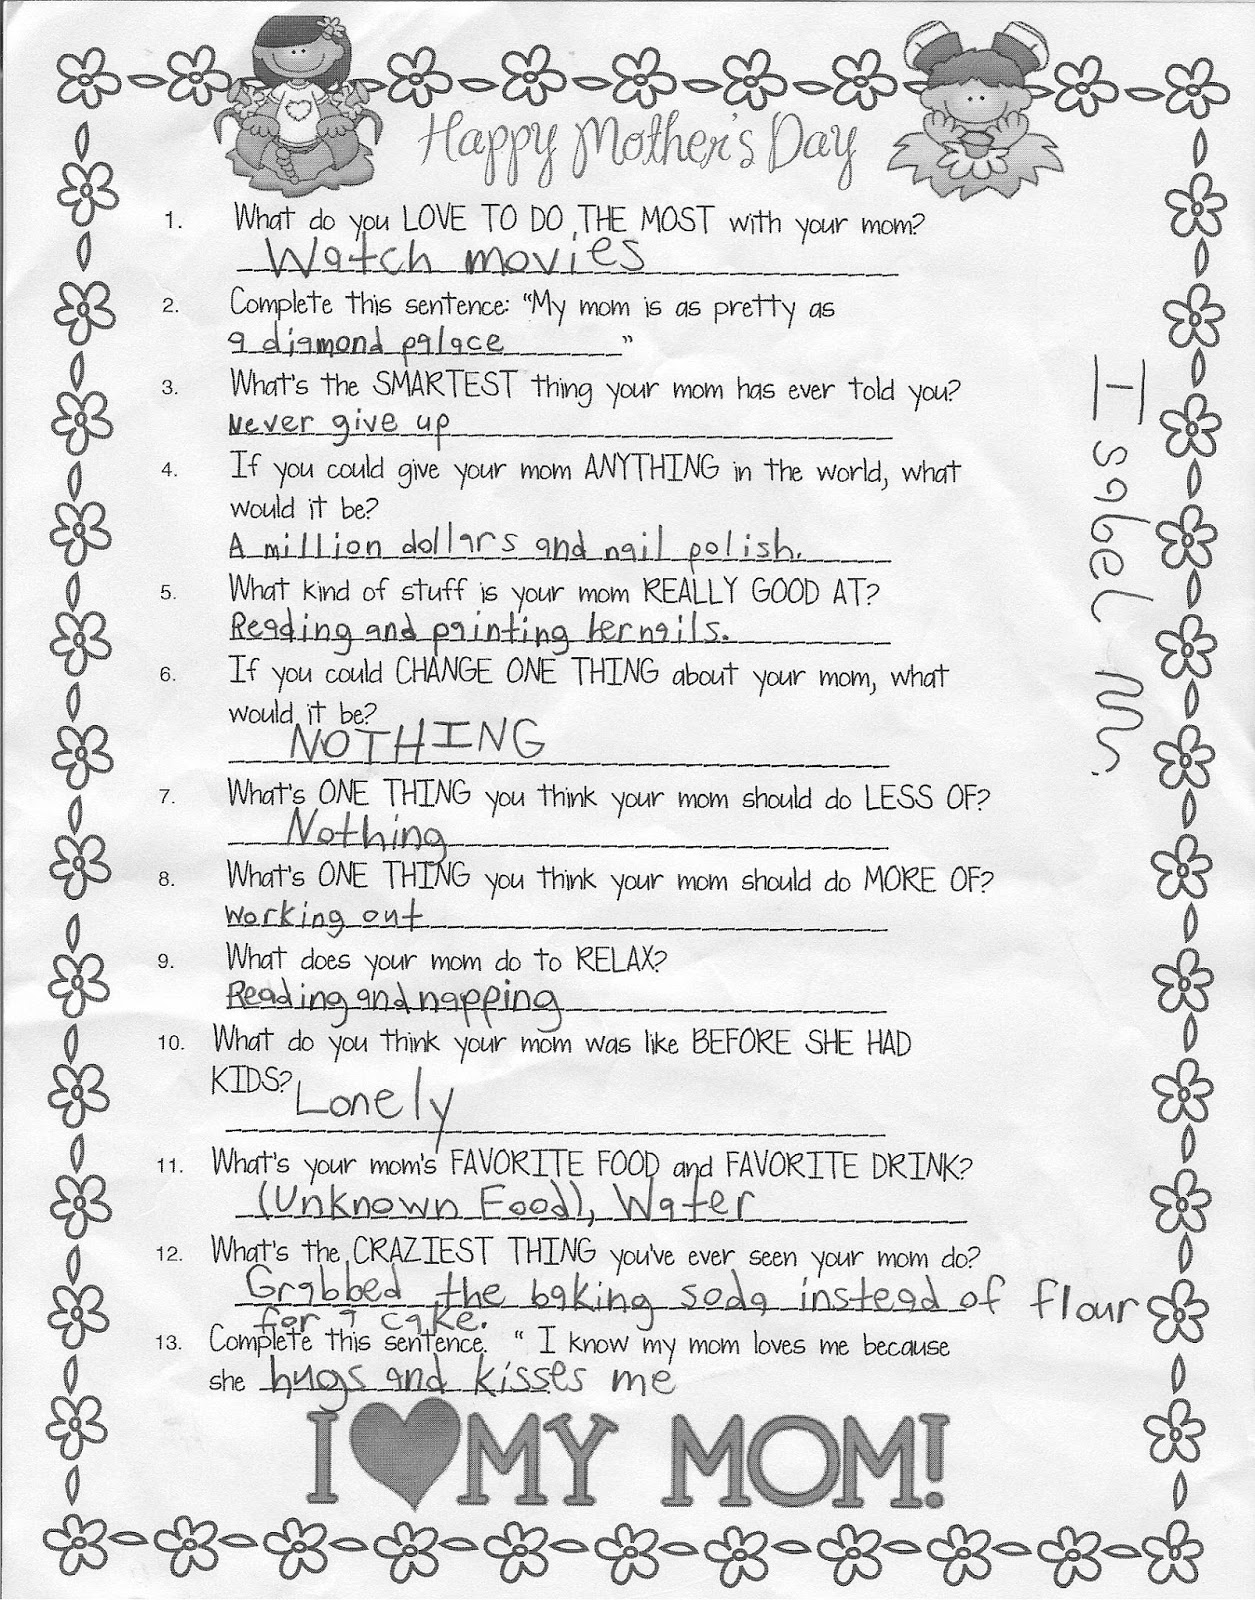 Happy Mother's Day
1. What do you LOVE TO DO THE MOST with your mom?
Watch movies
2. Complete this sentence: "My mom is as pretty as
a diamond palace"
3. What's the SMARTEST thing your mom has ever told you?
Never give up
4. If you could give your mom ANYTHING in the world, what
would it be?
A million dollars and nail polish.
5. What kind of stuff is your mom REALLY GOOD AT?
Reading and painting ternails.
6. If you could CHANGE ONE THING about your mom, what
would it be?
NOTHING
7. What's ONE THING you think your mom should do LESS OF?
Nothing
8. What's ONE THING you think your mom should do MORE OF?
working out
9. What does your mom do to RELAX?
Reading and napping
10. What do you think your mom was like BEFORE SHE HAD
KIDS? Lonely
11. What's your mom's FAVORITE FOOD and FAVORITE DRINK?
(Unknown Food), Water
12. What's the CRAZIEST THING you've ever seen your mom do?
Grabbed the baking soda instead of flour
for a cake.
13. Complete this sentence. " I know my mom loves me because
she hugs and kisses me
I MY MOM!
Isabel M